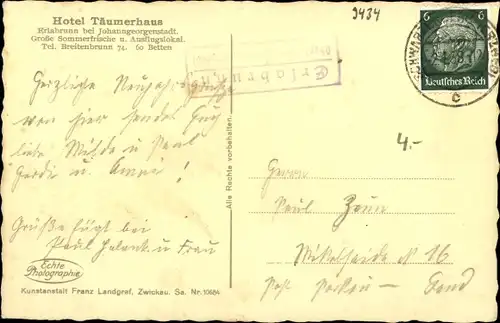 Hotel Täumerhaus
Erlabrunn bei Johanngeorgenstadt.
Große Sommerfrische u. Ausflugslokal.
Tel. Breitenbrunn 74. 60 Betten
3434
6 6
Deutsches Reich
SCHWARZ
c
Erlabrunn
4.-
Herzliche Neujahrsgrüße
von hier sendet Euch
liebe Milda u. Paul
Gerdi u.
Grüße fügt bei
Paul u Frau
Alle Rechte vorbehalten.
Herrn
Paul Zaun
No 16
Post
Echte
Photographie
Kunstanstalt Franz Landgraf, Zwickau. Sa. Nr. 10684